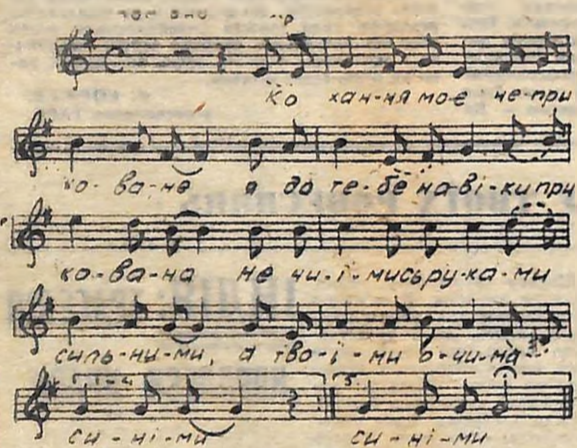 Ко хан-ня мо-є не-при
ко-ва-не я до те-бе на-ві-ки при
ко-ва-на не чи-ї-мись ру-ка-ми
силь-ни-ми, а тво-ї-ми о-чи-ма
1-4 5.
си-ні-ми си-ні-ми